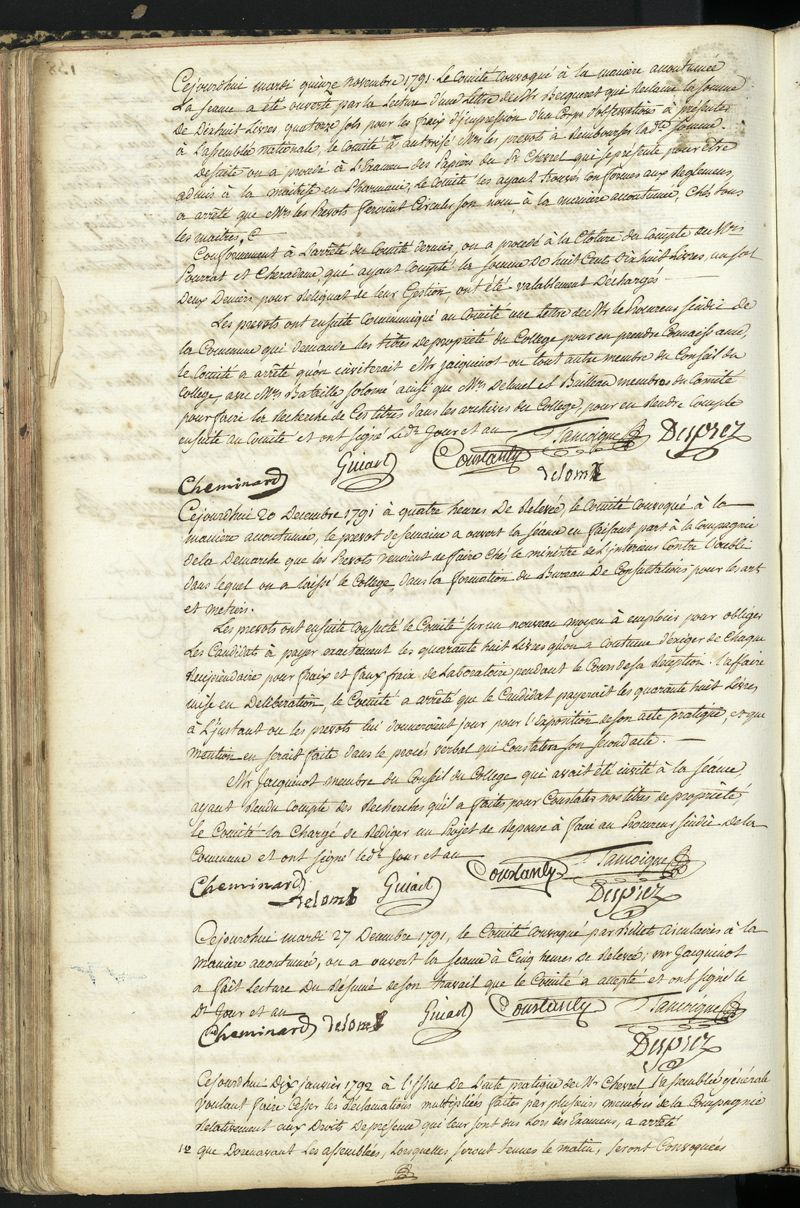 Cejourdhui mardi quinze novembre 1791. Le Comité Convoqué à la maniere accoutumée
La seance a été ouverte par la Lecture d'une Lettre de Mr Becqueret qui reclame la somme
De Dixhuit Livres quatorze sols pour les frais d'impression d'un Corps d'observations à presenter
à L'assemblée nationale, le Comité a autorisé Mrs les prevots à Rembourser la dte somme.
Desuite on a procedé à L'Examen des Papiers du Sr Chevrel qui se présente pour être
admis à la maitrise en Pharmacie, le Comité les ayant trouvés conformes aux Reglemens,
a arrêté que Mrs les Prevots feroient Circuler son nom, à la maniere accoutumée, chés tous
les maitres.
Conformement à L'arrêté du Comité dernier, on a procedé à la Cloture du Compte de Mrs
Pourrat et Cheradame qui ayant Compté la somme De huit Cent Dixhuit Livres, un sol
Deux Deniers pour reliquat de leur Gestion, ont été valablement Déchargés
Les prevots ont ensuite Communiqué au Comité une lettre de Mr le Procureur sindic De
la Commune qui demande les titres de propriété du College pour en prendre Connaissance,
le Comité a arrêté qu'on inviterait Mr Jacquinot ou tout autre membre du Conseil du
College, avec Mrs Bataille Solomé ainsi que Mrs Delunel et Builleau membres du Comité
pour faire la Recherche de Ces titres dans les archives du College, pour en Rendre Compte
ensuite au Comité et ont signé Le Dt Jour et an Tancoigne Duprez
Cheminard Guiart Coustanty Delomb
Cejourdhui 20 Decembre 1791 à quatre heures De Relevée, le Comité Convoqué à la
maniere accoutumée, le prevot de semaine a ouvert la séance en faisant part à la Compagnie
de la Demarche que les Prevots venoient de faire Chés le ministre de L'interieur Contre l'oubli
dans lequel on a laissé le College, dans la formation du Bureau De Consultations pour les art
et metiers.
Les prevots ont ensuite Consulté le Comité sur un nouveau moyen à emploier pour obliger
Les Candidats à payer exactement les quarante huit Livres qu'on a Coutume d'exiger de Chaque
Recipiendaire pour fraix et faux fraix de Laboratoire pendant le Cours de sa Reception. l'affaire
mise en Deliberation, le Comité a arrêté que le Candidat payerait les quarante huit Livres
à L'instant ou les prevots lui donneroient Jour pour l'Exposition de son acte pratique, et que
mention en serait faite dans le procés verbal qui Constatera son second acte.
Mr Jacquinot membre du Conseil du College qui avait été invité à la seance,
ayant Rendu Compte des Recherches qu'il a faites pour Constater nos titres de propriété
le Comité la Chargé de Rediger un Projet de Reponse à faire au Procureur sindic De la
Commune et ont signé le dt Jour et an Coustanty Tancoigne
Cheminard Delomb Guiart Duprez
Cejourdhui mardi 27 Decembre 1791, le Comité Convoqué par Billets Circulaires à la
Maniere accoutumée, on a ouvert la seance à Cinq heures De Relevée; Mr Jacquinot
a fait Lecture Du Résumé de son travail que le Comité a accepté et ont signé le
Dt Jour et an Guiart Coustanty Tancoigne
Cheminard Delomb Duprez
Cejourdhui Dix janvier 1792 à l'issue De L'acte pratique de Mr Chevrel l'assemblée générale
Voulant faire Cesser les Reclamations multipliées faites par plusieurs membres de la Compagnie
Relativement aux Droits De presence qui leur sont dus Lors des Examens, a arrêté
1o que Dorenavant Les assemblées, Lorsquelles seront tenues le matin, seront Convoquées